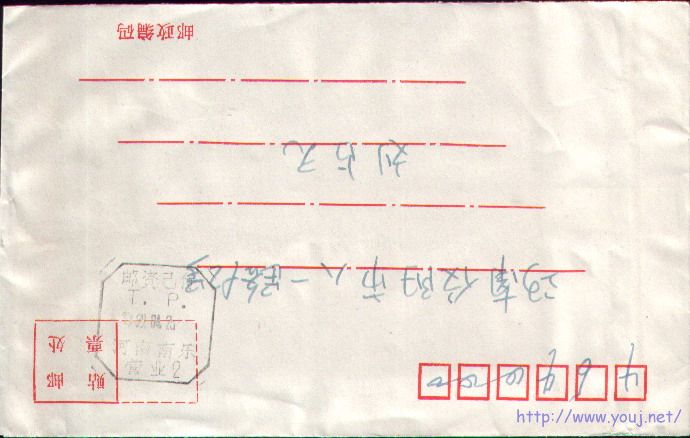 464000
河南信阳市八一路
刘
邮政编码
贴邮
票处
邮资已付
T. P.
河南南乐
营业2
http://www.youj.net/